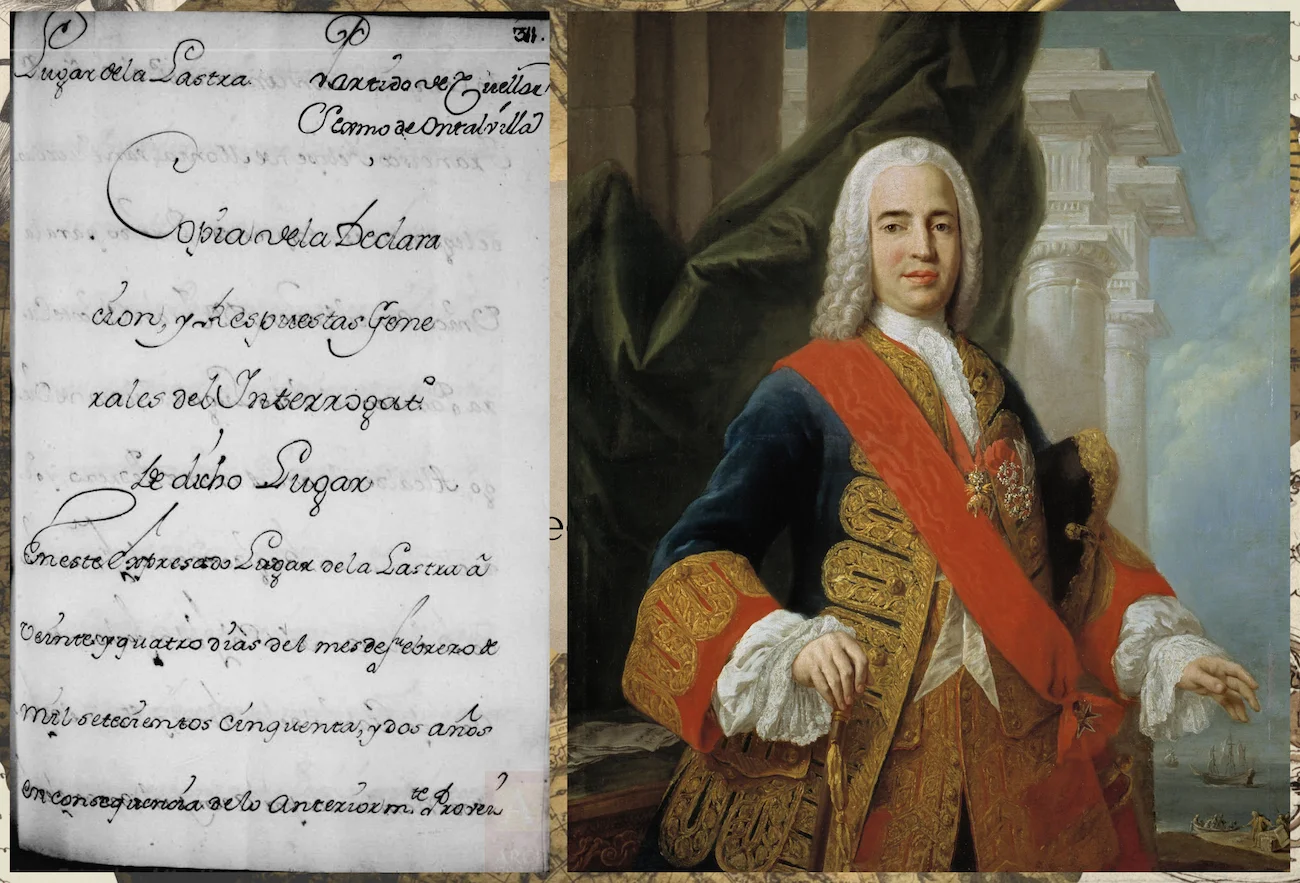 311.
Lugar dela Lastra Partido de Cuellar
Ocormo de Ontalvilla
Copia dela Declara
cion, y Respuestas Gene
rales del Interrogatº
de dicho Lugar
En este Expresado Lugar dela Lastra â
veinte y quatro dias del mes de febrero de
mil setecientos cinquenta, y dos años
en consequencia delo Anteriorm.te Provei